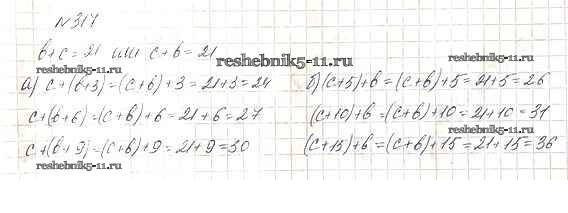 №317
в+с=21 или с+в=21
reshebnik5-11.ru
reshebnik5-11.ru
reshebnik5-11.ru
а) с+(в+3)=(с+в)+3=21+3=24
б) (с+5)+в=(с+в)+5=21+5=26
с+(в+6)=(с+в)+6=21+6=27
(с+10)+в=(с+в)+10=21+10=31
reshebnik5-11.ru
reshebnik5-11.ru
с+(в+9)=(с+в)+9=21+9=30
(с+15)+в=(с+в)+15=21+15=36
reshebnik5-11.ru